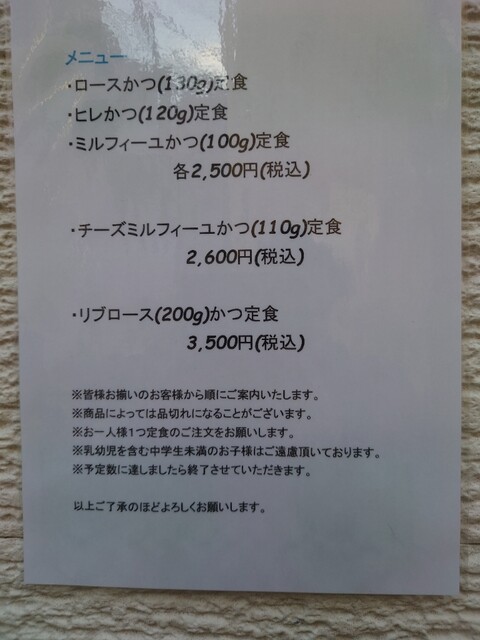 メニュー
・ロースかつ(130g)定食
・ヒレかつ(120g)定食
・ミルフィーユかつ(100g)定食
各2,500円(税込)
・チーズミルフィーユかつ(110g)定食
2,600円(税込)
・リブロース(200g)かつ定食
3,500円(税込)
※皆様お揃いのお客様から順にご案内いたします。
※商品によっては品切れになることがございます。
※お一人様1つ定食のご注文をお願いします。
※乳幼児を含む中学生未満のお子様はご遠慮頂いております。
※予定数に達しましたら終了させていただきます。
以上ご了承のほどよろしくお願いします。